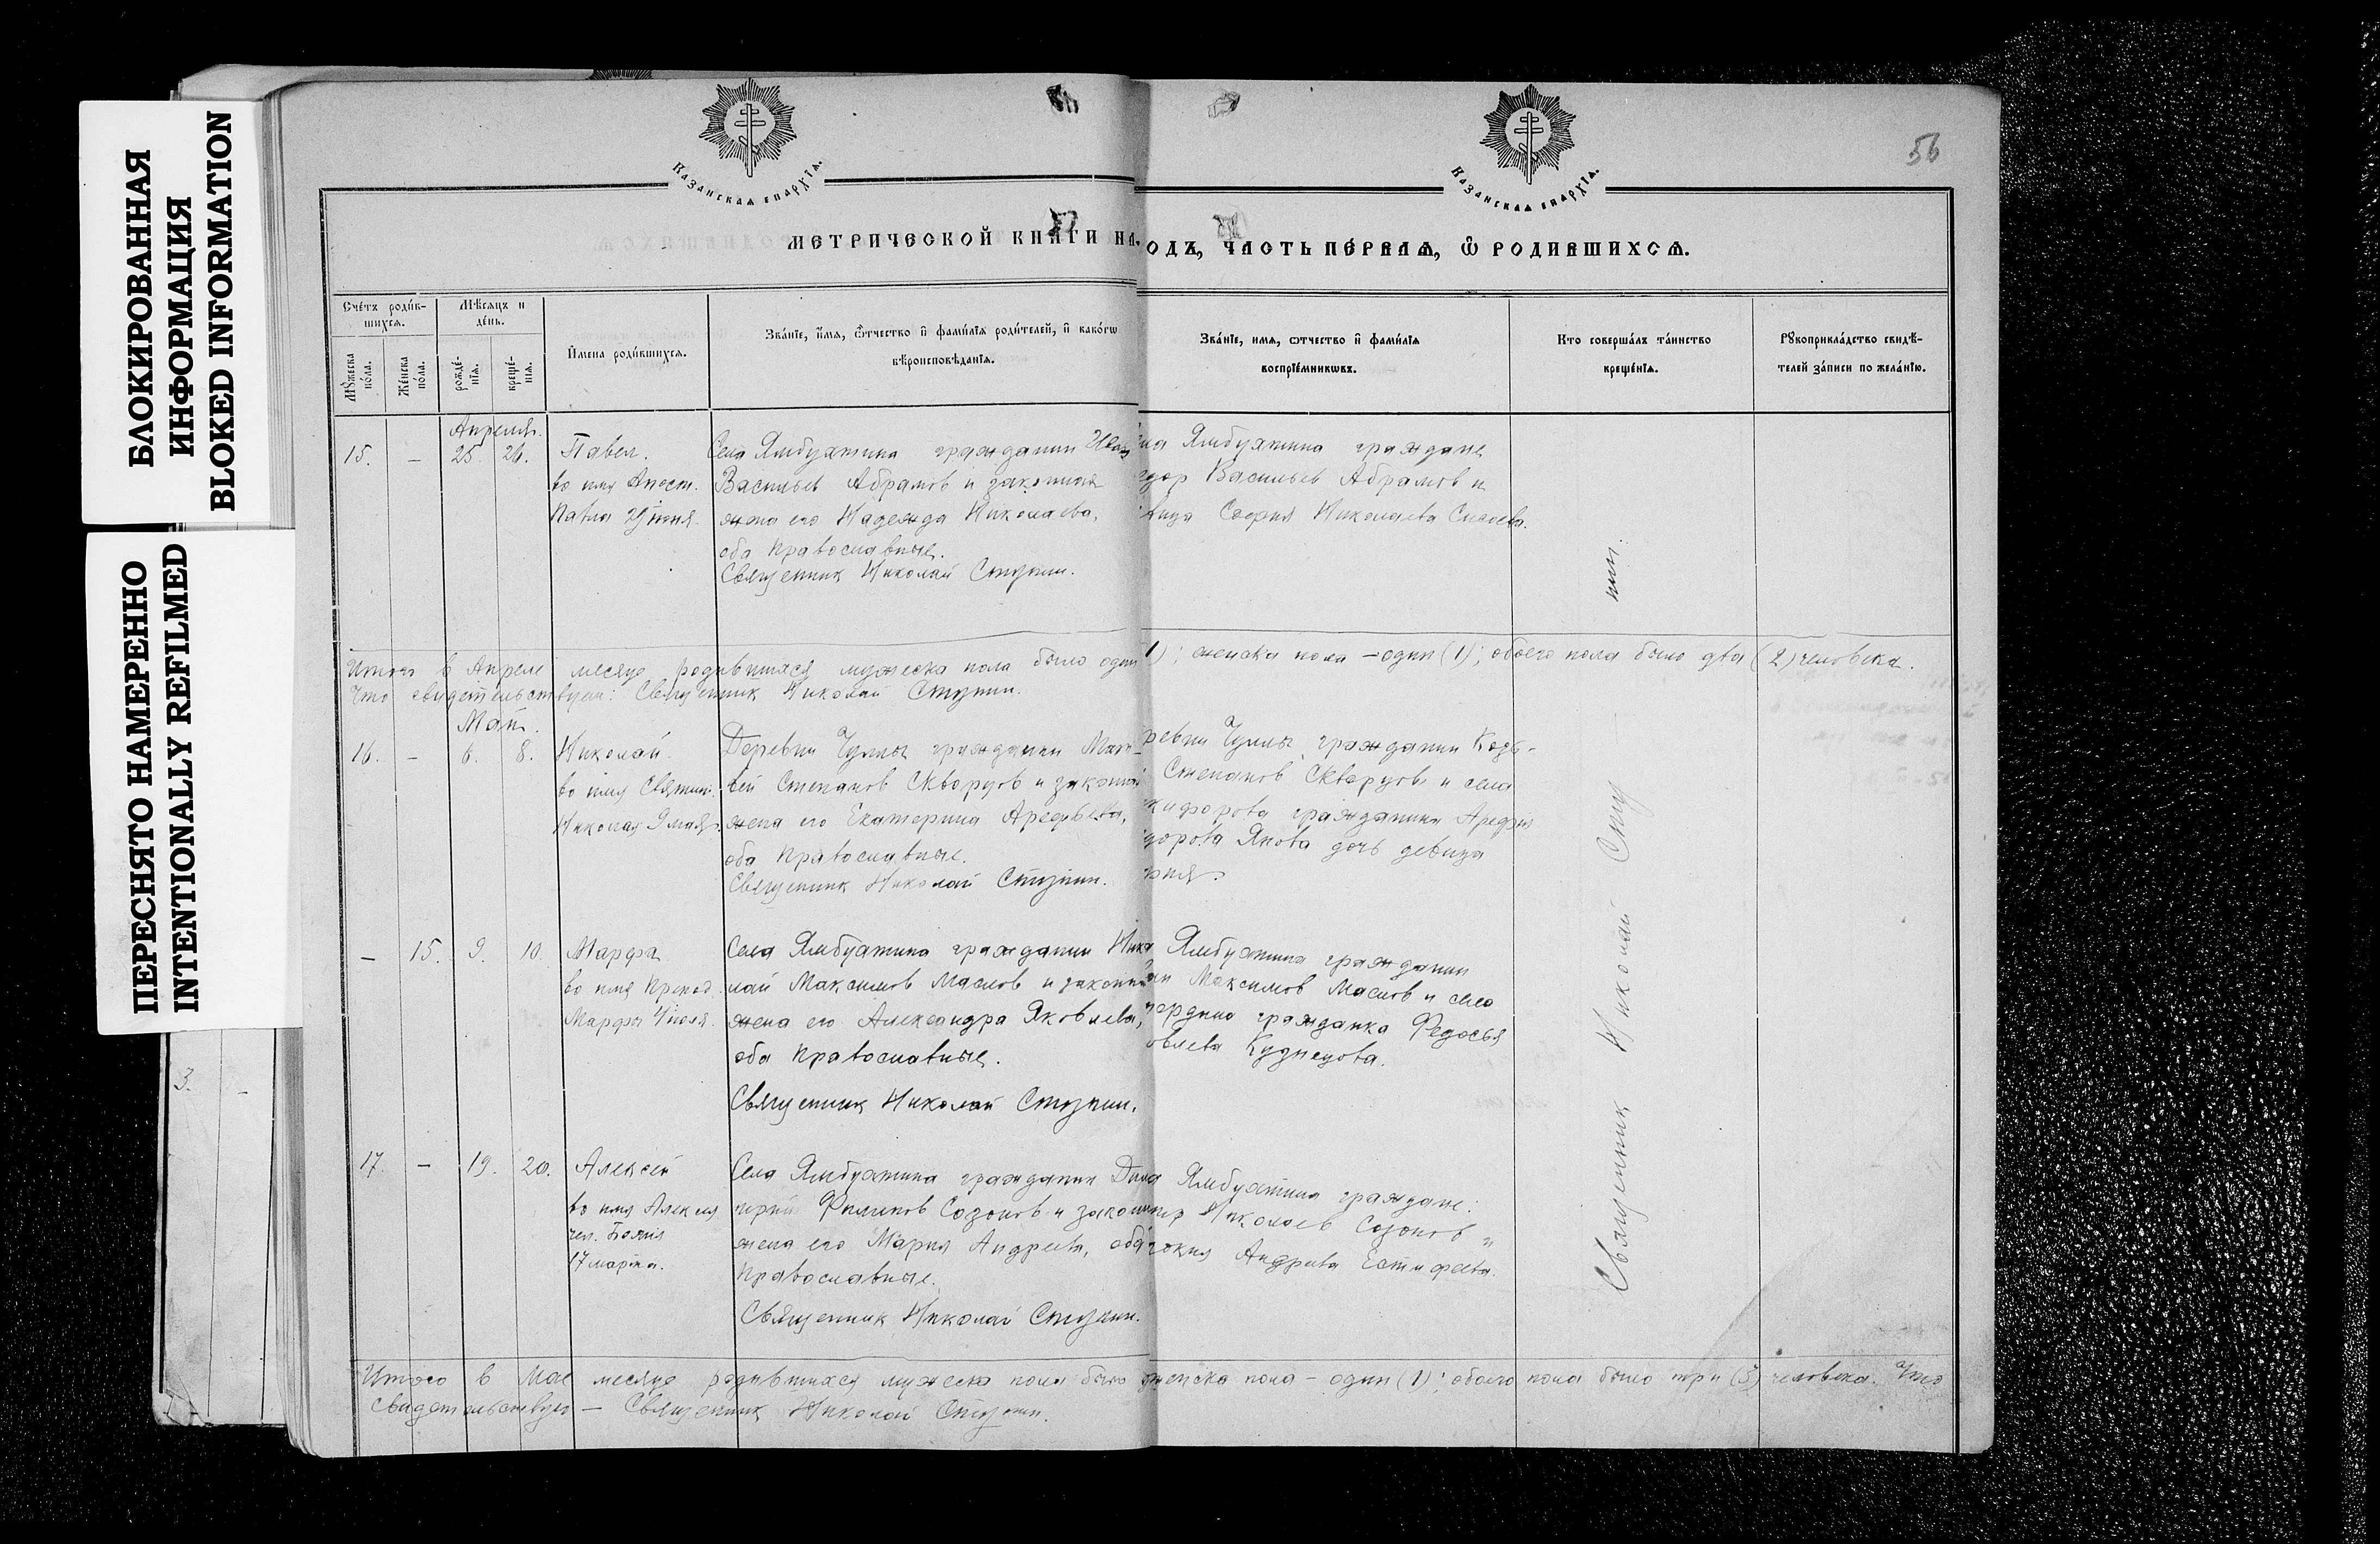 БЛОКИРОВАННАЯ
ИНФОРМАЦИЯ
BLOKED INFORMATION
ПЕРЕСНЯТО НАМЕРЕННО
INTENTIONALLY REFILMED
3. -
Казанская епархїѧ.
Казанская епархїѧ.
56
МЕТРИЧЕСКОЙ КНИГИ НА
ОДЪ, ЧАСТЬ ПЕ́РВАѦ, Ѽ РОДИВШИХСѦ.
Счетъ роди́в-
шихсѧ.
Мѣсѧцъ и
де́нь.
Мꙋжеска
по́ла.
Же́нска
по́ла.
рожде́-
нїѧ.
креще́-
нїѧ.
И҆мена роди́вшихсѧ.
Зва́нїе, и҆́мѧ, ѻ҆́тчество и҆ фами́лїѧ роди́телей, и҆ како́гѡ
вѣроисповѣ́данїѧ.
Зва́нїе, имѧ, ѻтчество и҆ фами́лїѧ
воспрїе́мникѡвъ.
Кто соверша́лъ та́инство
креще́нїѧ.
Рꙋкоприкла́дство свидѣ́-
телей за́писи по жела́нїю.
Апреля.
15. - 25. 26. Павел.
во имя Апост.
Павла 29 июня.
Села Ямбухтина гражданин Иван
Васильев Абрамов и законная
жена его Надежда Николаева,
оба Православные.
Священник Николай Ступин.
ла Ямбухтина граждане
Васильев Абрамов и
вица София Николаева
Итого в Апреле месяце родившихся мужеска пола было один
1); женска пола - один (1); обоего пола было два (2) человека.
Что свидетельствую: Священник Николай Ступин.
Май.
16. - 6. 8. Николай
во имя Святит.
Николая 9 мая.
Деревни Чулпы гражданин Мат-
вей Степанов Скворцов и законная
жена его Екатерина Арефьева,
оба Православные.
Священник Николай Ступин.
ревни Чулпы гражданин
Степанов Скворцов и села
кифорова гражданина Арефия
дорова Янова дочь девица
- 15. 9. 10. Марфа
во имя Препод.
Марфы 4 июля.
Села Ямбухтина гражданин Нико
лай Максимов Маслов и законная
жена его Александра Яковлева,
оба Православные.
Священник Николай Ступин.
Ямбухтина гражданин
Максимов Маслов и села
гражданка Федосья
овлева Кузнецова.
17. - 19. 20. Алексей
во имя Алексея
чел. Божия
17 марта.
Села Ямбухтина гражданин Дми
трий Филипов Созонов и законная
жена его Мария Андреева, оба
Православные.
Священник Николай Ступин.
Ямбухтина граждане:
Николаев Созонов и
Андреева Естифеева.
Священник Николай Ступин.
Итого в Мае месяце родившихся мужеска пола было
женска пола - один (1); обоего пола было три (3) человека. Что
свидетельствую - Священник Николай Ступин.